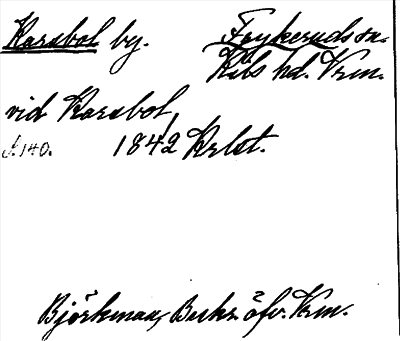 Karsbol by. Frykeruds sn.
Kils hd. Vrm.
vid Karsbol,
s. 140. 1842 Krlst.
Björkman, Beskr. öfv. Vrm.